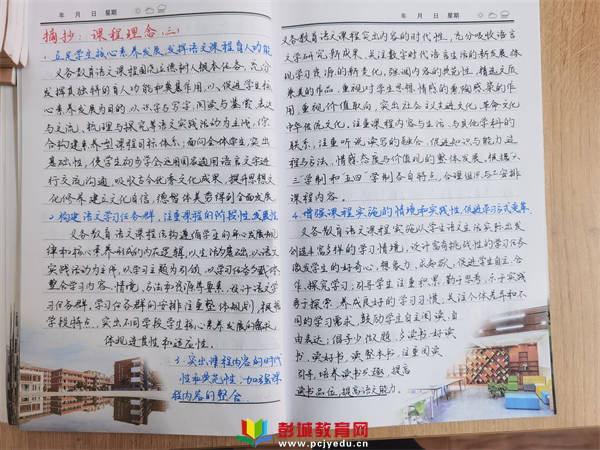 年 月 日 星期
摘抄：课程理念（三）
1、立足学生核心素养发展，发挥语文课程育人功能
义务教育语文课程围绕立德树人根本任务，充分
发挥其独特的育人功能和奠基作用，以促进学生核
心素养发展为目的，以识字与写字、阅读与鉴赏、表达
与交流、梳理与探究等语文实践活动为主线，综
合构建素养型课程目标体系；面向全体学生，突出
基础性，使学生初步学会运用国家通用语言文字进
行交流沟通，吸收古今优秀文化成果，提升思想文
化修养，建立文化自信，德智体美劳得到全面发展。
2、构建语文学习任务群，注重课程的阶段性、发展性
义务教育语文课程结构遵循学生的身心发展规
律和核心素养形成的内在逻辑，以生活为基础，以语文
实践活动为主线，以学习主题为引领，以学习任务为载体，
整合学习内容、情境、方法和资源等要素，设计语文学
习任务群。学习任务群的安排注重整体规划，根据
学段特点，突出不同学段学生核心素养发展的需求，
体现连贯性和适应性。
3、突出课程内容的时代
性和典范性，加强课
程内容的整合
年 月 日 星期
义务教育语文课程突出内容的时代性，充分吸收语言
文学研究新成果，关注数字时代语言生活的新发展，体
现学习资源的新变化。强调内容的典范性，精选文质
兼美的作品，重视对学生思想情感的熏陶感染的作
用，重视价值取向，突出社会主义先进文化、革命文化
中华传统文化。注重课程内容与生活、与其他学科的
联系，注重听说读写的融合，促进知识与能力、过
程与方法、情感态度与价值观的整体发展。根据“六
三”学制和“五四”学制各自特点，合理组织与安排
课程内容。
4、增强课程实施的情境和实践性，促进学习方式变革
义务教育语文课程实施从学生语文生活实际出发
创造丰富多样的学习情境，设计富有挑战性的学习任务
激发学生的好奇心、想象力、求知欲，促进学生自主、合
作、探究学习；引导学生注重积累，勤于思考，乐于实践
勇于探索，养成良好的学习习惯；关注个体差异和不
同的学习需求，鼓励学生自主阅读、自
由表达；倡导少做题、多读书、好读
书、读好书、读整本书，注重阅读
引导，培养读书兴趣，提高
读书品位，提高语文能力。
彭城教育网
www.pcjyedu.cn